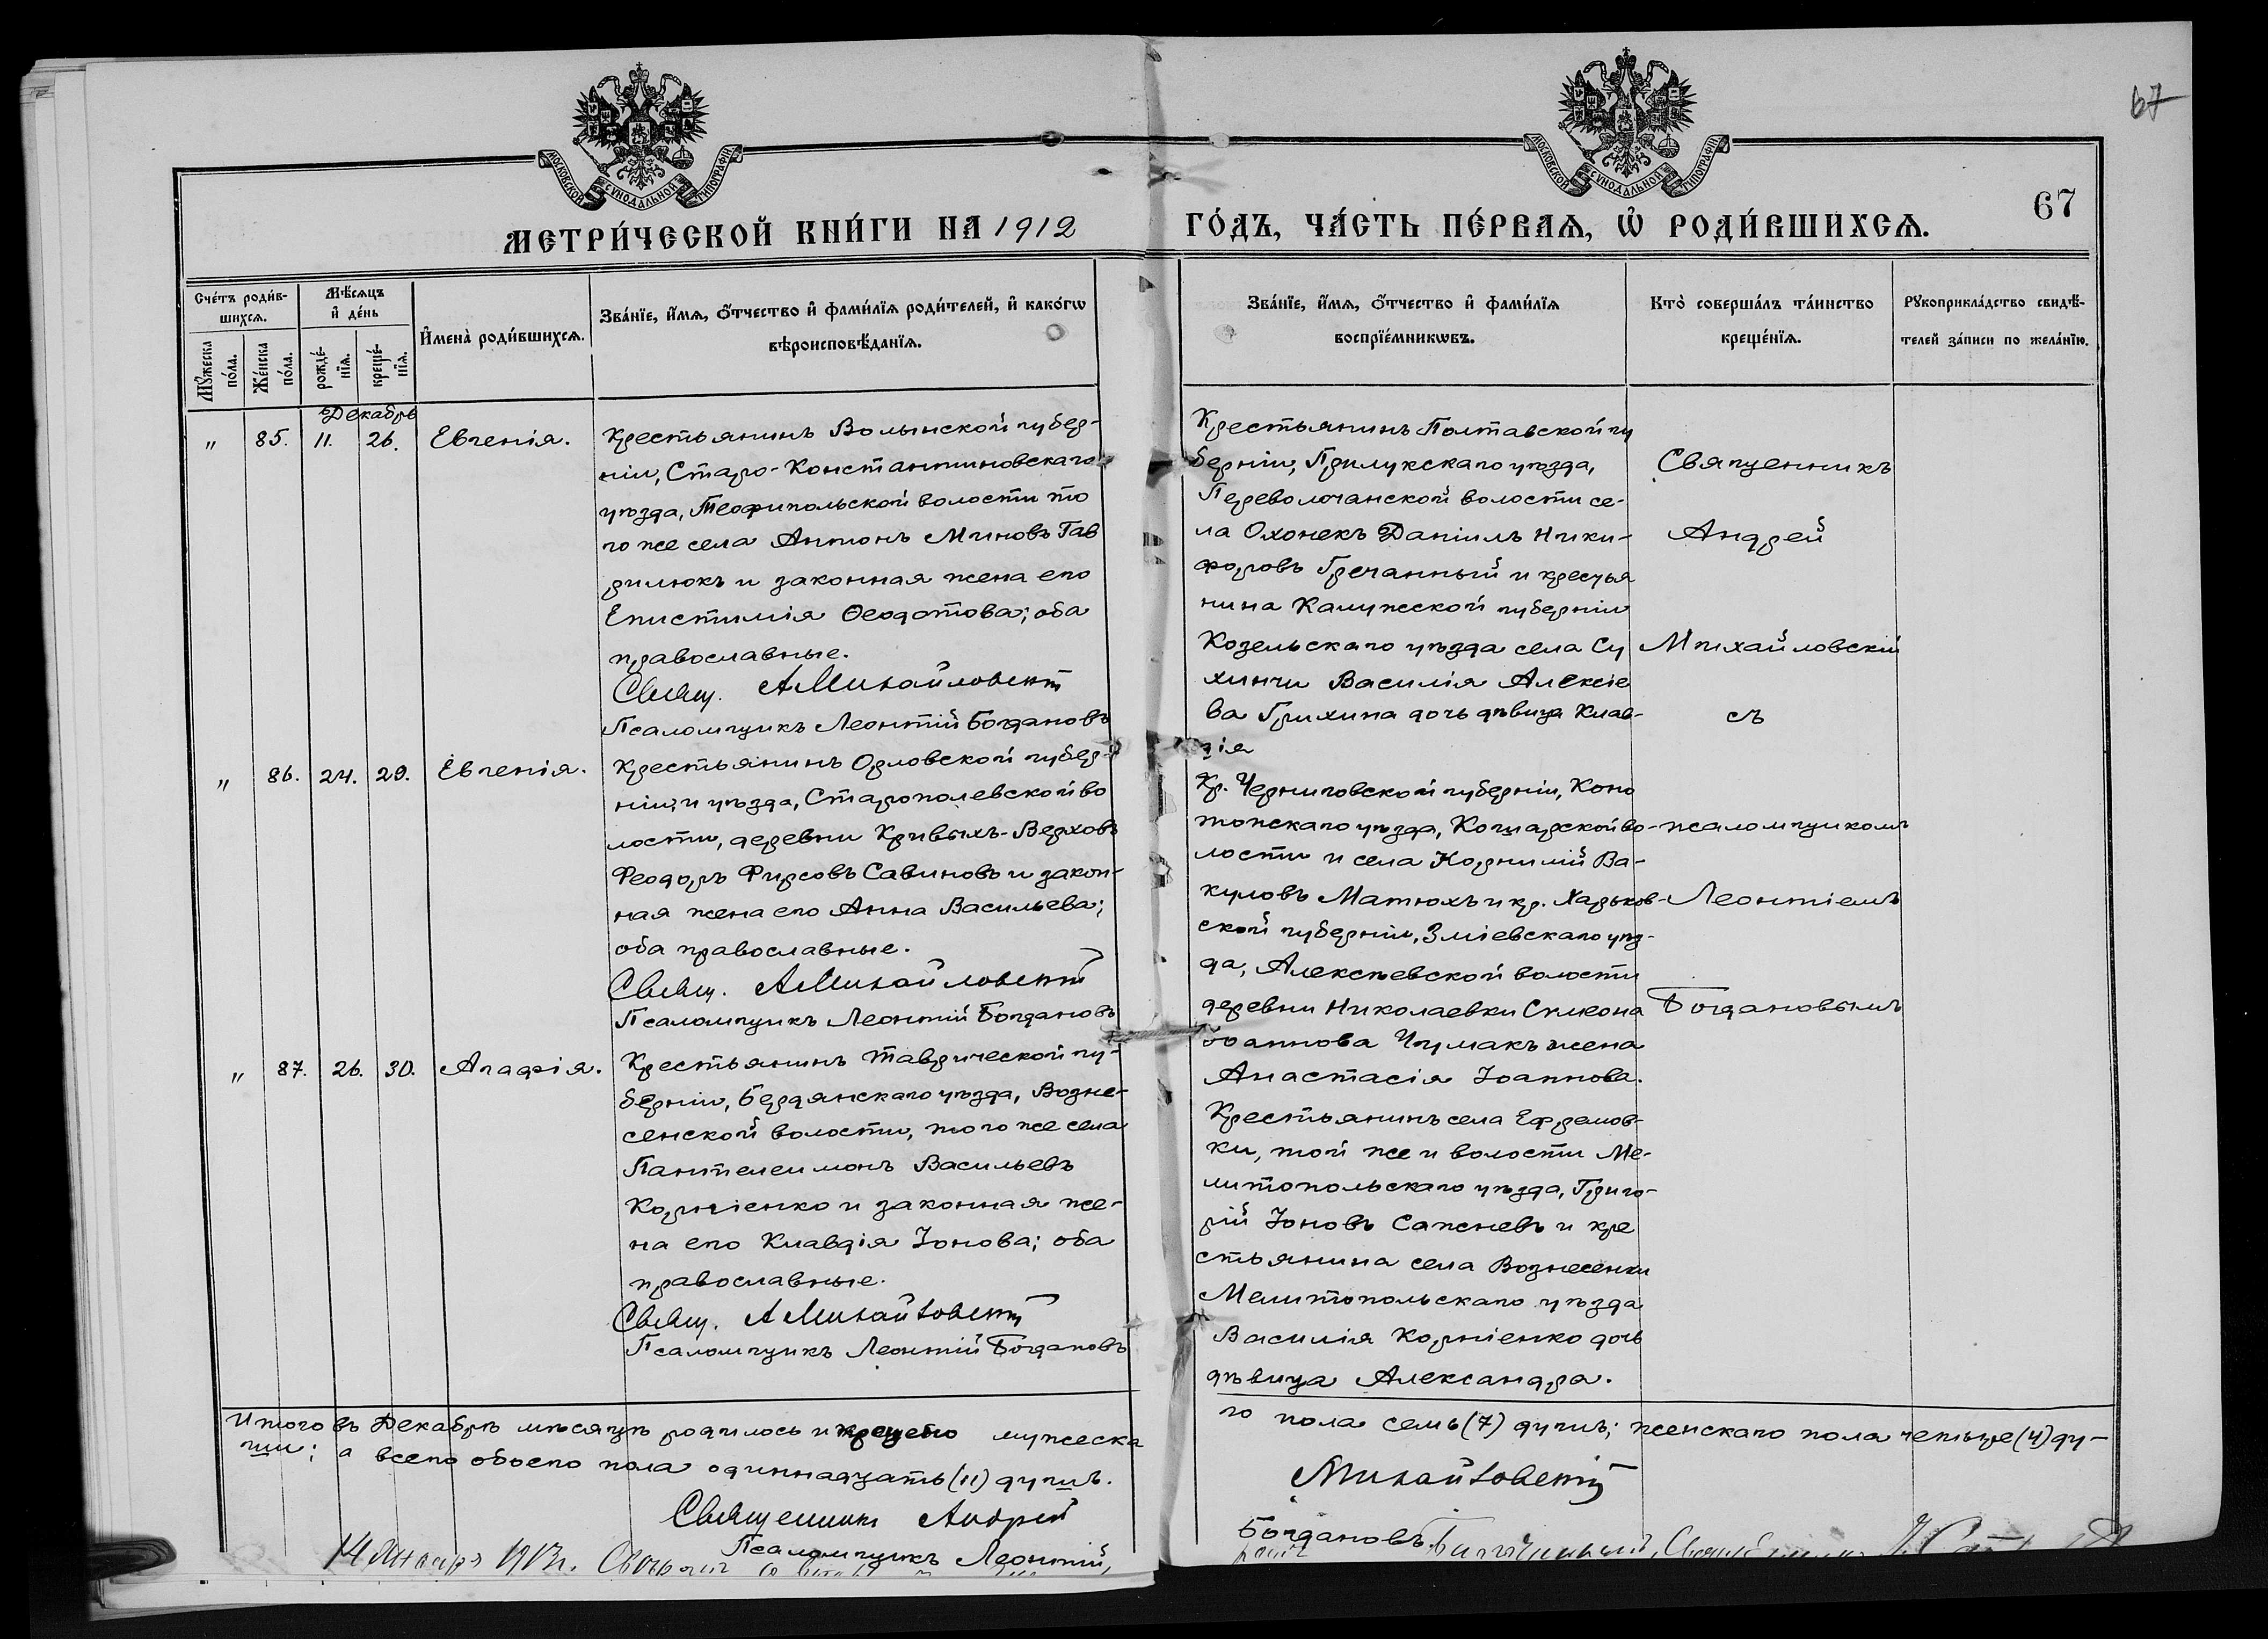 67
МОСКОВСКОЙ СѴНОДАЛЬНОЙ ТИПОГРАФІИ
МОСКОВСКОЙ СѴНОДАЛЬНОЙ ТИПОГРАФІИ
67
МЕТРИ́ЧЕСКОЙ КНИ́ГИ НА 1912 ГО́ДЪ, ЧА́СТЬ ПЕ́РВАѦ, Ѡ҆ РОДИ́ВШИХСѦ.
Сче́тъ роди́в-
шихсѧ.
Мꙋ́жеска
по́ла.
Же́нска
по́ла.
Мѣ́сѧцъ
и҆ де́нь
рожде́-
нїѧ.
креще́-
нїѧ.
И҆мена̀ роди́вшихсѧ.
Зва́нїе, и҆́мѧ, ѻ҆́тчество и҆ фами́лїѧ роди́телей, и҆ како́гѡ
вѣроисповѣ́данїѧ.
Зва́нїе, и҆́мѧ, ѻ҆́тчество и҆ фами́лїѧ
воспрїе́мникѡвъ.
Кто̀ соверша́лъ та́инство
креще́нїѧ.
Рꙋкоприкла́дство свидѣ́-
телей за́писи по жела́нїю.
Декабрь
" 85. 11. 26. Евгенія.
Крестьянинъ Волынской губер-
ніи, Старо-Константиновскаго
уѣзда, Теофипольской волости то
го же села Антонъ Миновъ Гав
рилюкъ и законная жена его
Епистимія Ѳеодотова; оба
православные.
Свящ. А Михайловскій
Псаломщикъ Леонтій Богдановъ
Крестьянинъ Полтавской гу
берніи, Прилукскаго уѣзда,
Переволочанской волости се-
ла Охонекъ Даніилъ Ники-
форовъ Гречанный и крестья
нина Калужской губерніи
Козельскаго уѣзда села Су
хиничи Василія Алексіе
ва Грихина дочь дѣвица Клав-
дія
Священникъ
Андрей
Михайловскій
съ
псаломщикомъ
Леонтіемъ
Богдановымъ
" 86. 24. 29. Евгенія.
Крестьянинъ Орловской губер-
ніи и уѣзда, Старополевской во
лости, деревни Кривыхъ-Верховъ
Феодоръ Фирсовъ Савиновъ и закон-
ная жена его Анна Васильева;
оба православные.
Свящ. А Михайловскій
Псаломщикъ Леонтій Богдановъ
Кр. Черниговской губерніи, Коно
топскаго уѣзда, Кошарской во-
лости и села Корнилій Ва-
куловъ Матюхъ и кр. Харьков-
ской губерніи, Зміевскаго уѣз-
да, Алексѣевской волости
деревни Николаевки Симеона
Іоаннова Чумакъ жена
Анастасія Іоаннова.
" 87. 26. 30. Агафія.
Крестьянинъ Таврической гу-
берніи, Бердянскаго уѣзда, Возне-
сенской волости, того же села
Пантелеимонъ Васильевъ
Корніенко и законная же-
на его Клавдія Іонова; оба
православные.
Свящ. А Михайловскій
Псаломщикъ Леонтій Богдановъ
Крестьянинъ села Ефремов-
ки, той же и волости Ме-
литопольскаго уѣзда, Григо-
рій Іоновъ Сапсневъ и кре
стьянина села Вознесенки
Мелитопольскаго уѣзда
Василія Корніенко дочь
дѣвица Александра.
Итого въ Декабрѣ мѣсяцѣ родилось и крещено мужеска
го пола семь (7) душъ; женскаго пола четыре (4) ду-
ши; а всего обоего пола одиннадцать (11) душъ.
Священникъ Андрей Михайловскій
Псаломщикъ Леонтій Богдановъ.
14 Января 1913 г.